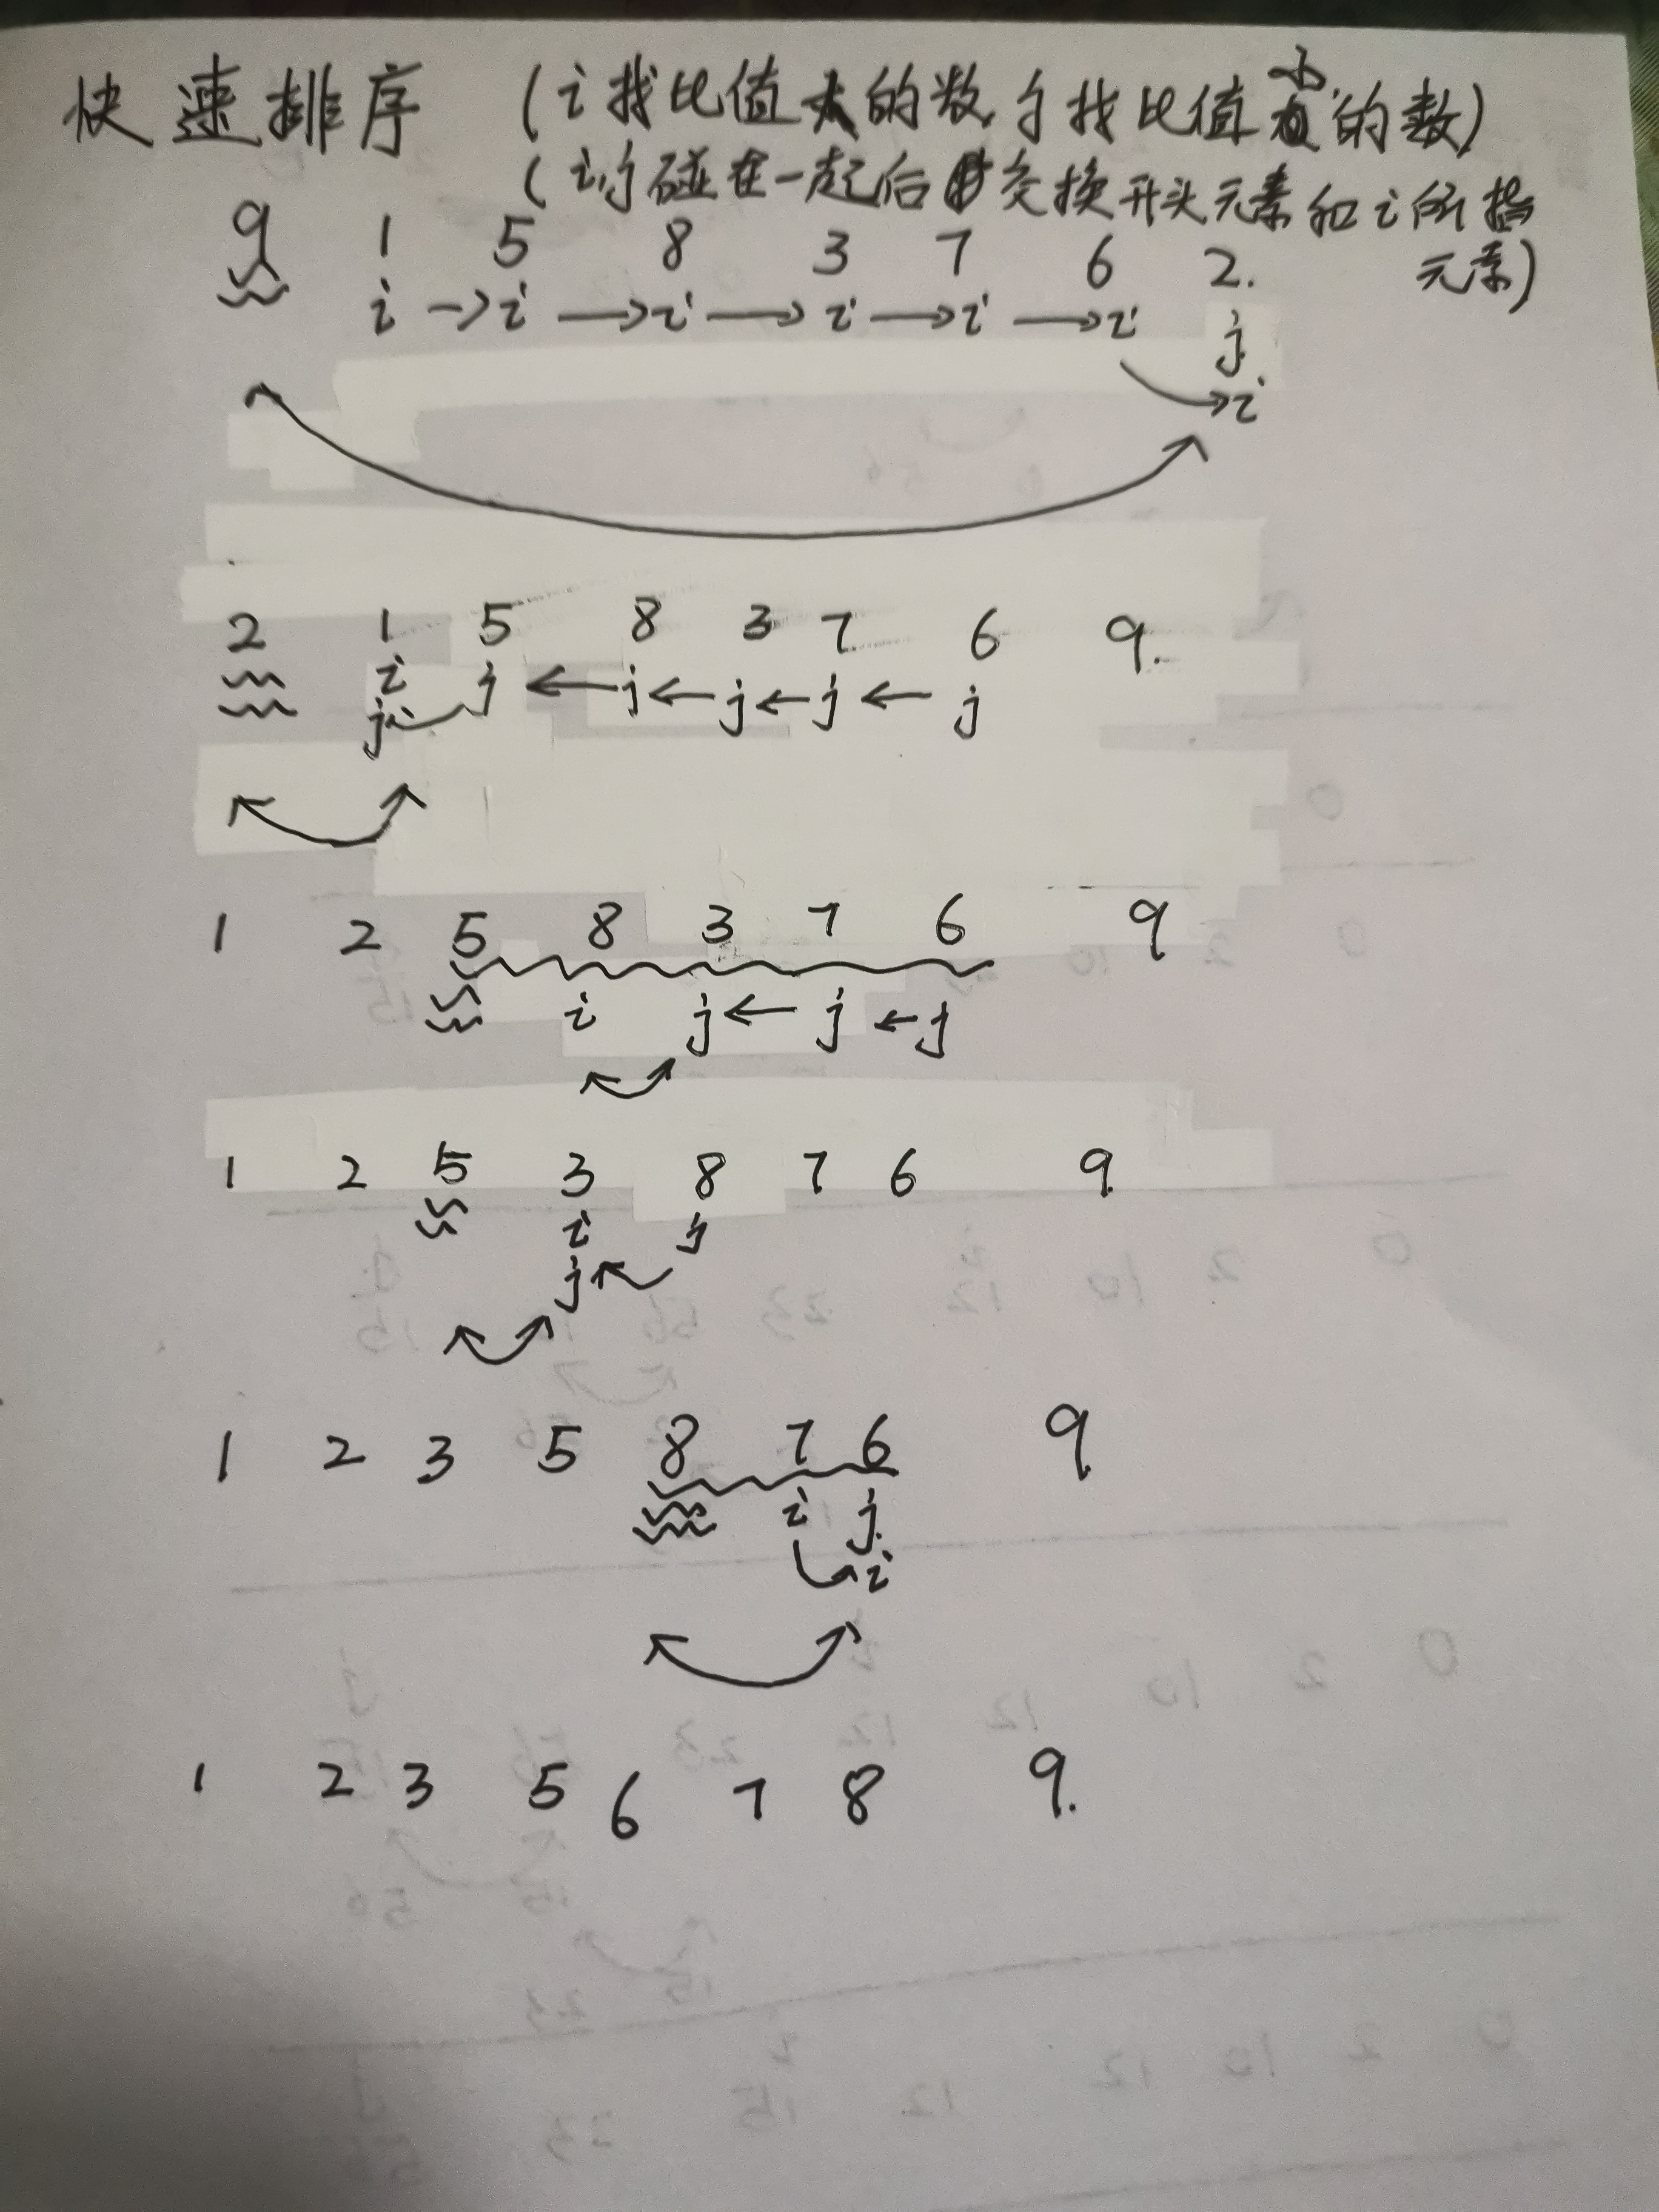 快速排序 (i找比值大的数,j找比值小的数)
(i,j碰在一起后交换开头元素和i所指
元素)
9 1 5 8 3 7 6 2.
i → i → i → i → i → i j
→ i
2 1 5 8 3 7 6 9.
i j ← j ← j ← j ← j
j
1 2 5 8 3 7 6 9
i j ← j ← j
1 2 5 3 8 7 6 9
i j
j
1 2 3 5 8 7 6 9
i j
i
1 2 3 5 6 7 8 9.